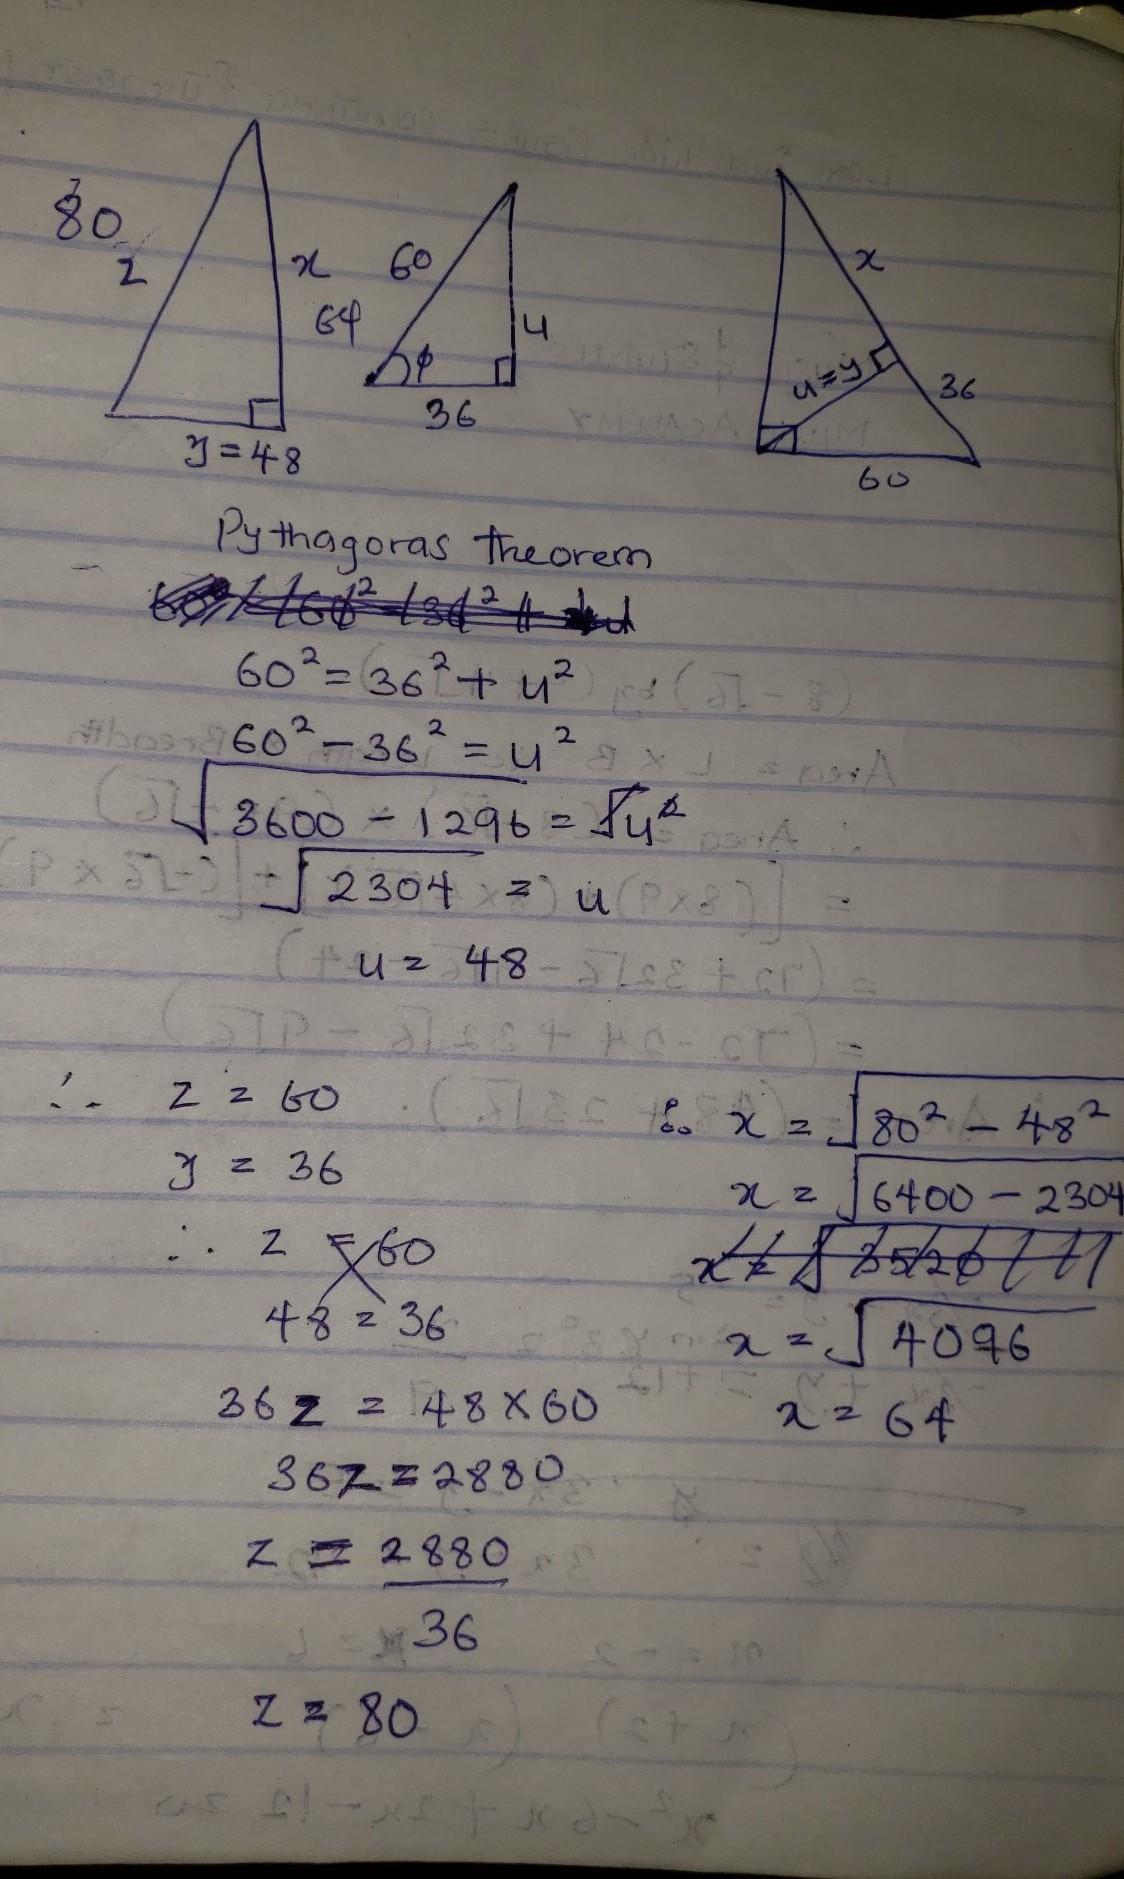 80
z
x
64
y = 48
60
u
φ
36
x
u = y
36
60
Pythagoras theorem
60² = 36² + u²
60² − 36² = u²
√3600 − 1296 = √u²
√2304 = u
u = 48
∴ z = 60
y = 36
∴ z = 60
48 = 36
36z = 48 × 60
36z = 2880
z = 2880
36
z = 80
∴ x = √80² − 48²
x = √6400 − 2304
x = √4096
x = 64